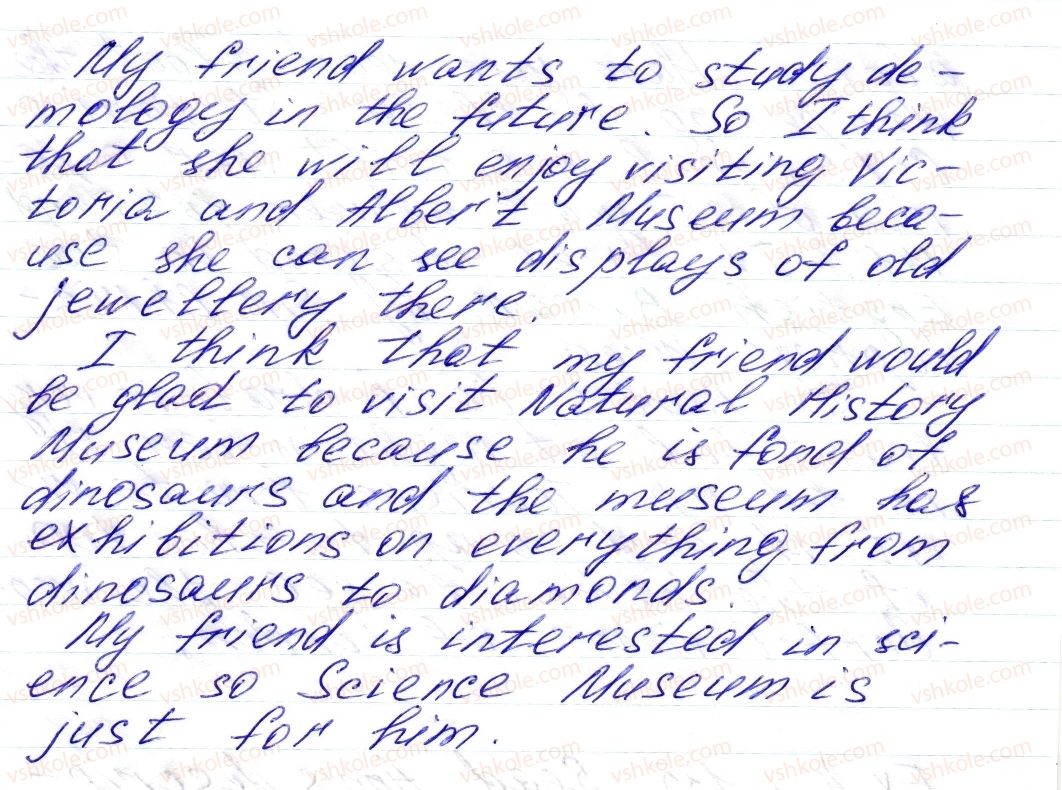 My friend wants to study de-
mology in the future. So I think
that she will enjoy visiting Vic-
toria and Albert Museum beca-
use she can see displays of old
jewellery there.
I think that my friend would
be glad to visit Natural History
Museum because he is fond of
dinosaurs and the museum has
exhibitions on everything from
dinosaurs to diamonds.
My friend is interested in sci-
ence so Science Museum is
just for him.
vshkole.com